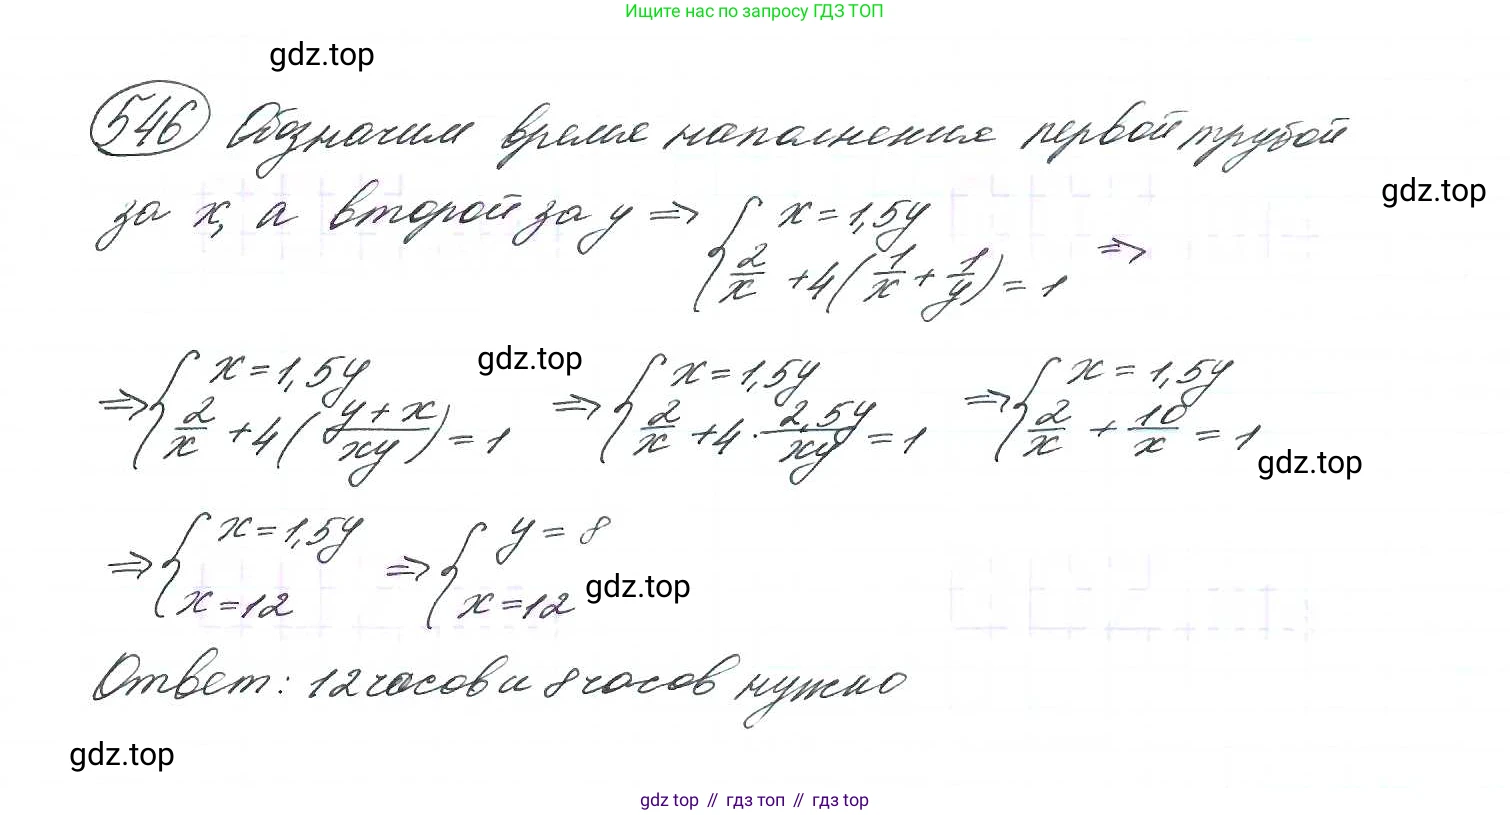 Ищите нас по запросу ГДЗ ТОП
gdz.top
546 Обозначим время наполнения первой трубой
за x, а второй за y ⇒ { x = 1,5y
2/x + 4(1/x + 1/y) = 1 ⇒
gdz.top
⇒ { x = 1,5y
2/x + 4((y + x)/xy) = 1
gdz.top
⇒ { x = 1,5y
2/x + 4 · 2,5y/xy = 1
⇒ { x = 1,5y
2/x + 10/x = 1
gdz.top
⇒ { x = 1,5y
x = 12
⇒ { y = 8
x = 12
gdz.top
Ответ: 12 часов и 8 часов нужно
gdz.top
gdz top // гдз топ // гдз top